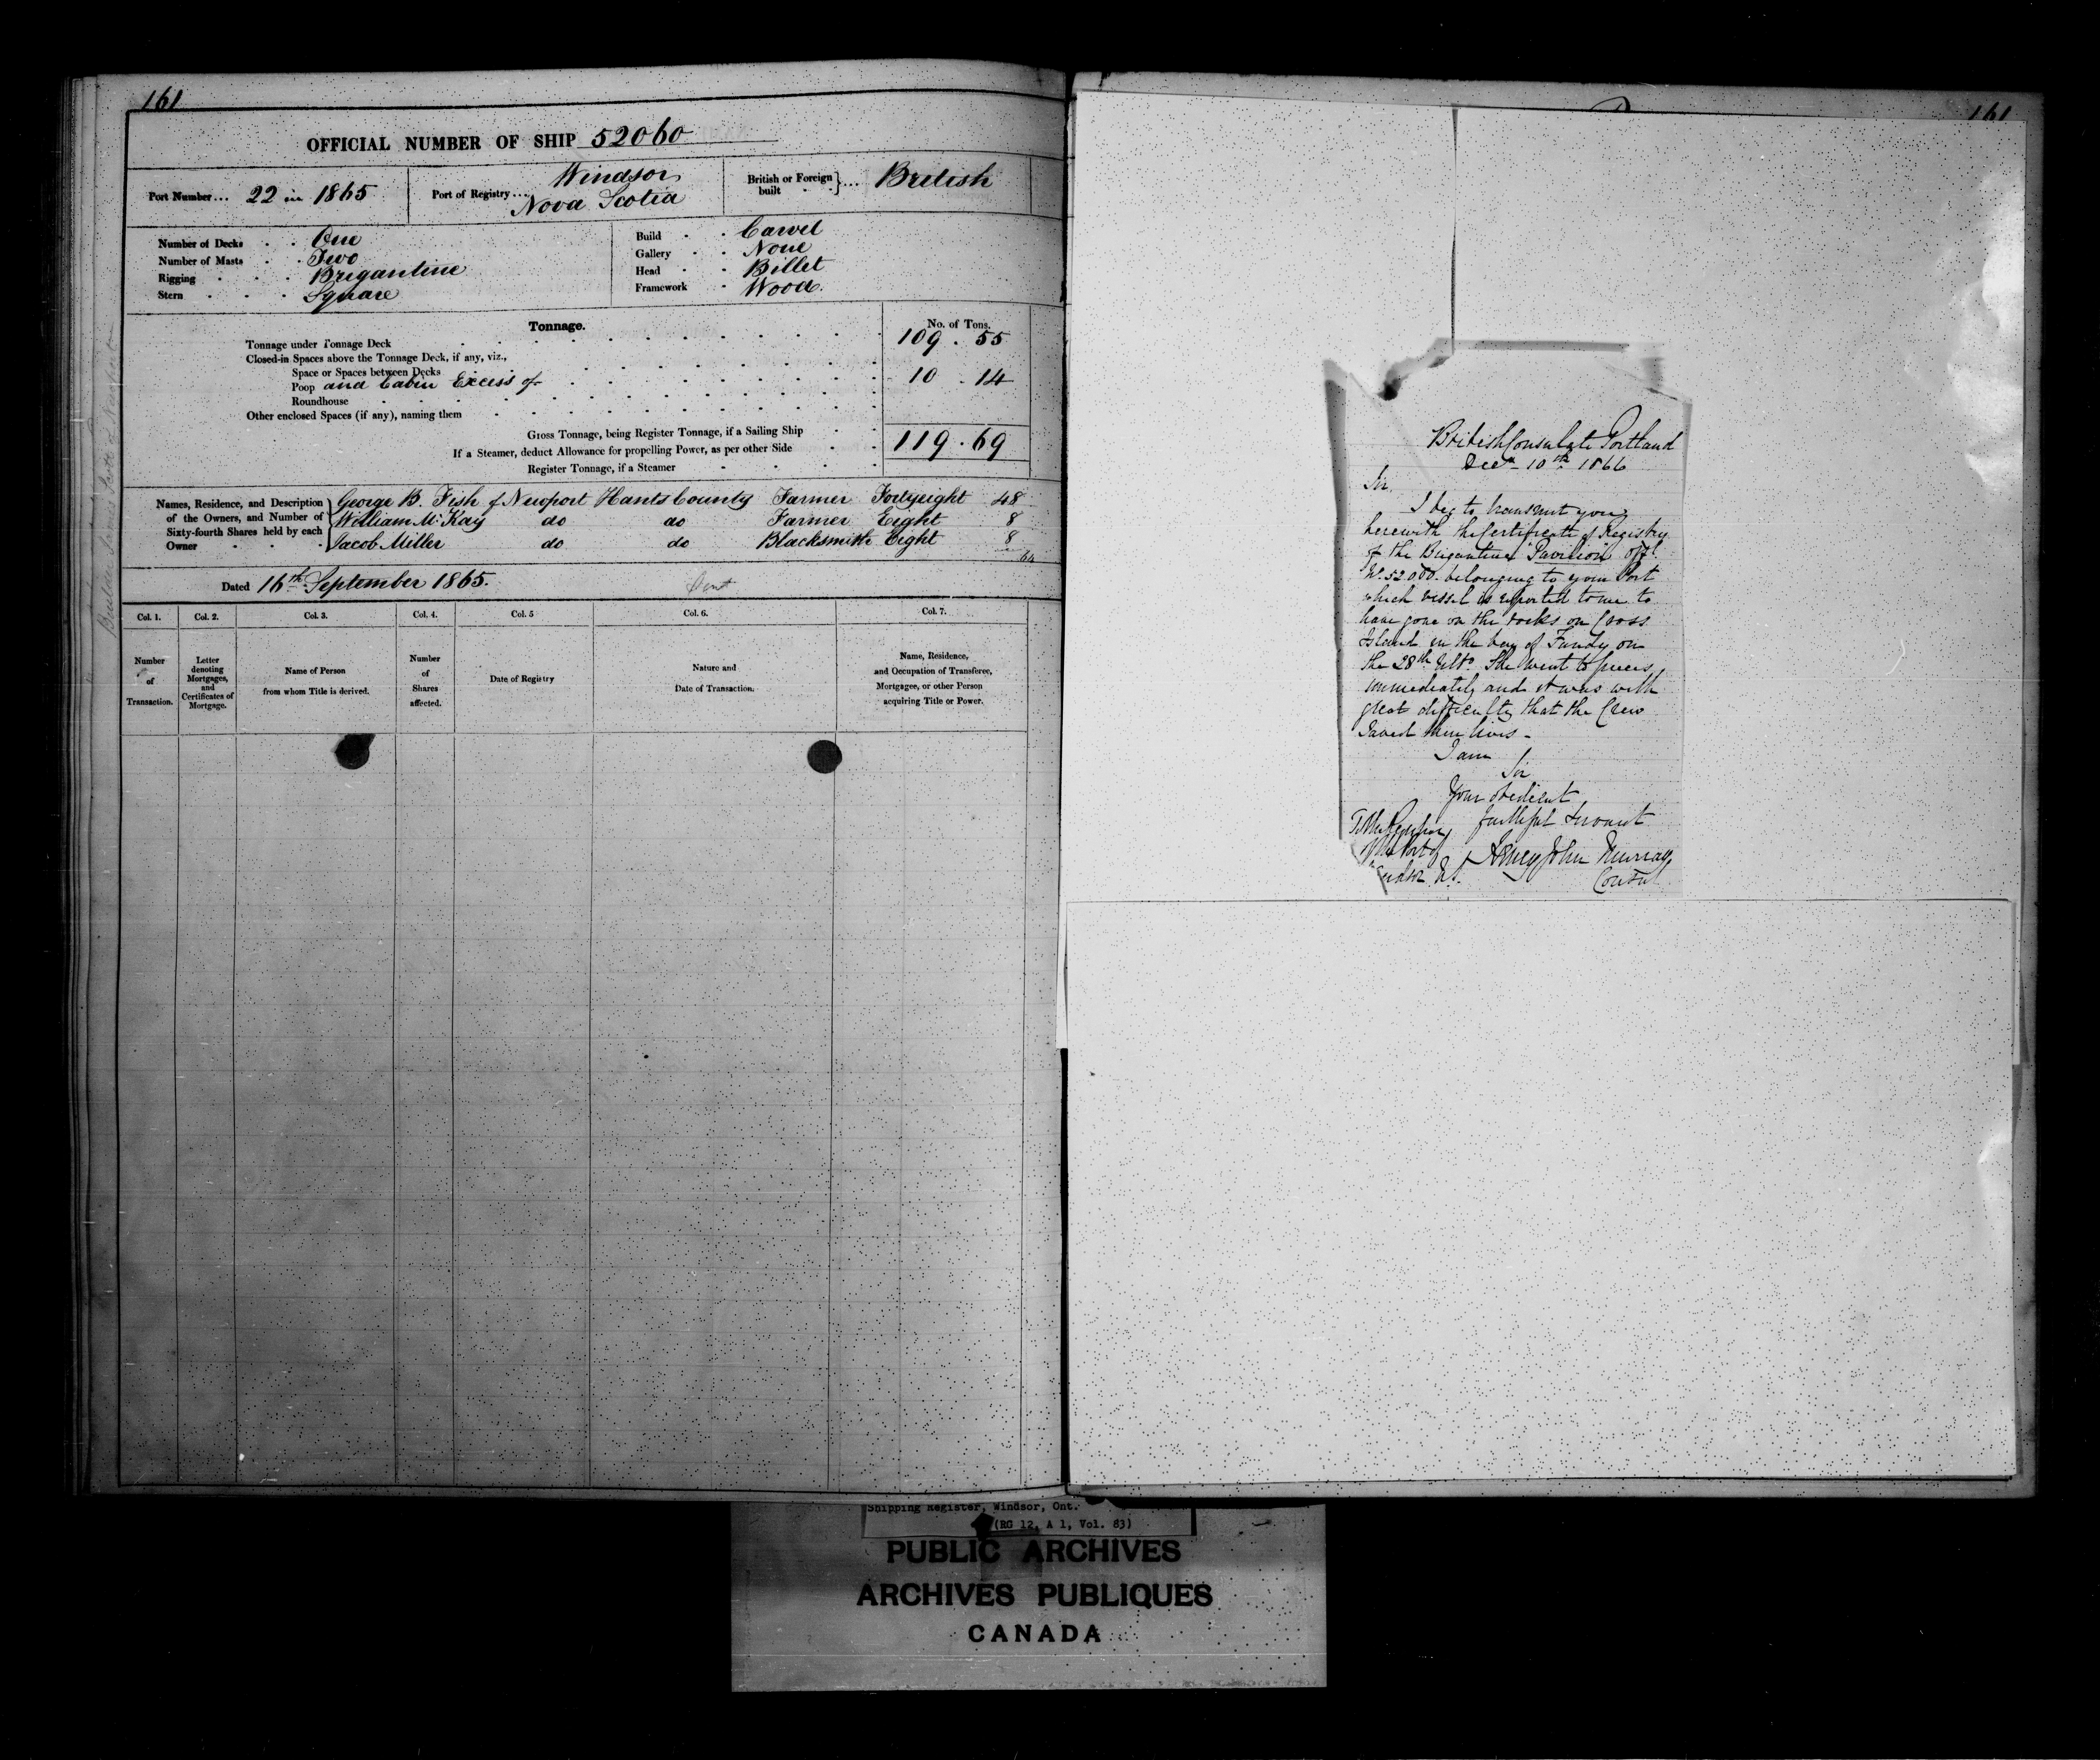 161
OFFICIAL NUMBER OF SHIP 52060
Port Number... 22 in 1865
Port of Registry... Windsor Nova Scotia
British or Foreign built }... British
Number of Decks . . One
Number of Masts . . Two
Rigging . . . Brigantine
Stern . . . . Square
Build . . Carvel
Gallery . . None
Head . . Billet
Framework . Wood.
Tonnage.
No. of Tons.
Tonnage under Tonnage Deck 109 . 55
Closed-in Spaces above the Tonnage Deck, if any, viz.,
Space or Spaces between Decks
Poop and Cabin Excess of 10 . 14
Roundhouse
Other enclosed Spaces (if any), naming them
Gross Tonnage, being Register Tonnage, if a Sailing Ship 119 . 69
If a Steamer, deduct Allowance for propelling Power, as per other Side
Register Tonnage, if a Steamer
Names, Residence, and Description of the Owners, and Number of Sixty-fourth Shares held by each Owner
George B. Fish of Newport Hants County Farmer Fortyeight 48
William McKay do do Farmer Eight 8
Jacob Miller do do Blacksmith Eight 8
64
Dated 16th September 1865.
Col. 1. Col. 2. Col. 3. Col. 4. Col. 5 Col. 6. Col. 7.
Number of Transaction.
Letter denoting Mortgages, and Certificates of Mortgage.
Name of Person from whom Title is derived.
Number of Shares affected.
Date of Registry
Nature and Date of Transaction.
Name, Residence, and Occupation of Transferee, Mortgagee, or other Person acquiring Title or Power.
161
British Consulate Portland
Decr 10th 1866
Sir,
I beg to transmit you
herewith the Certificate of Registry
of the Brigantine Pavilion offl
No. 52060 belonging to your Port
which vessel is reported to me to
have gone on the rocks on Cross
Island in the bay of Fundy on
the 28th Ulto. She went to pieces
immediately and it was with
great difficulty that the Crew
saved their lives -
I am
Sir
Your obedient
faithful Servant
Henry John Murray
Consul
To the Registrar
of the Port of
Windsor N.S.
Shipping Register, Windsor, Ont.
(RG 12, A 1, Vol. 83)
PUBLIC ARCHIVES
ARCHIVES PUBLIQUES
CANADA